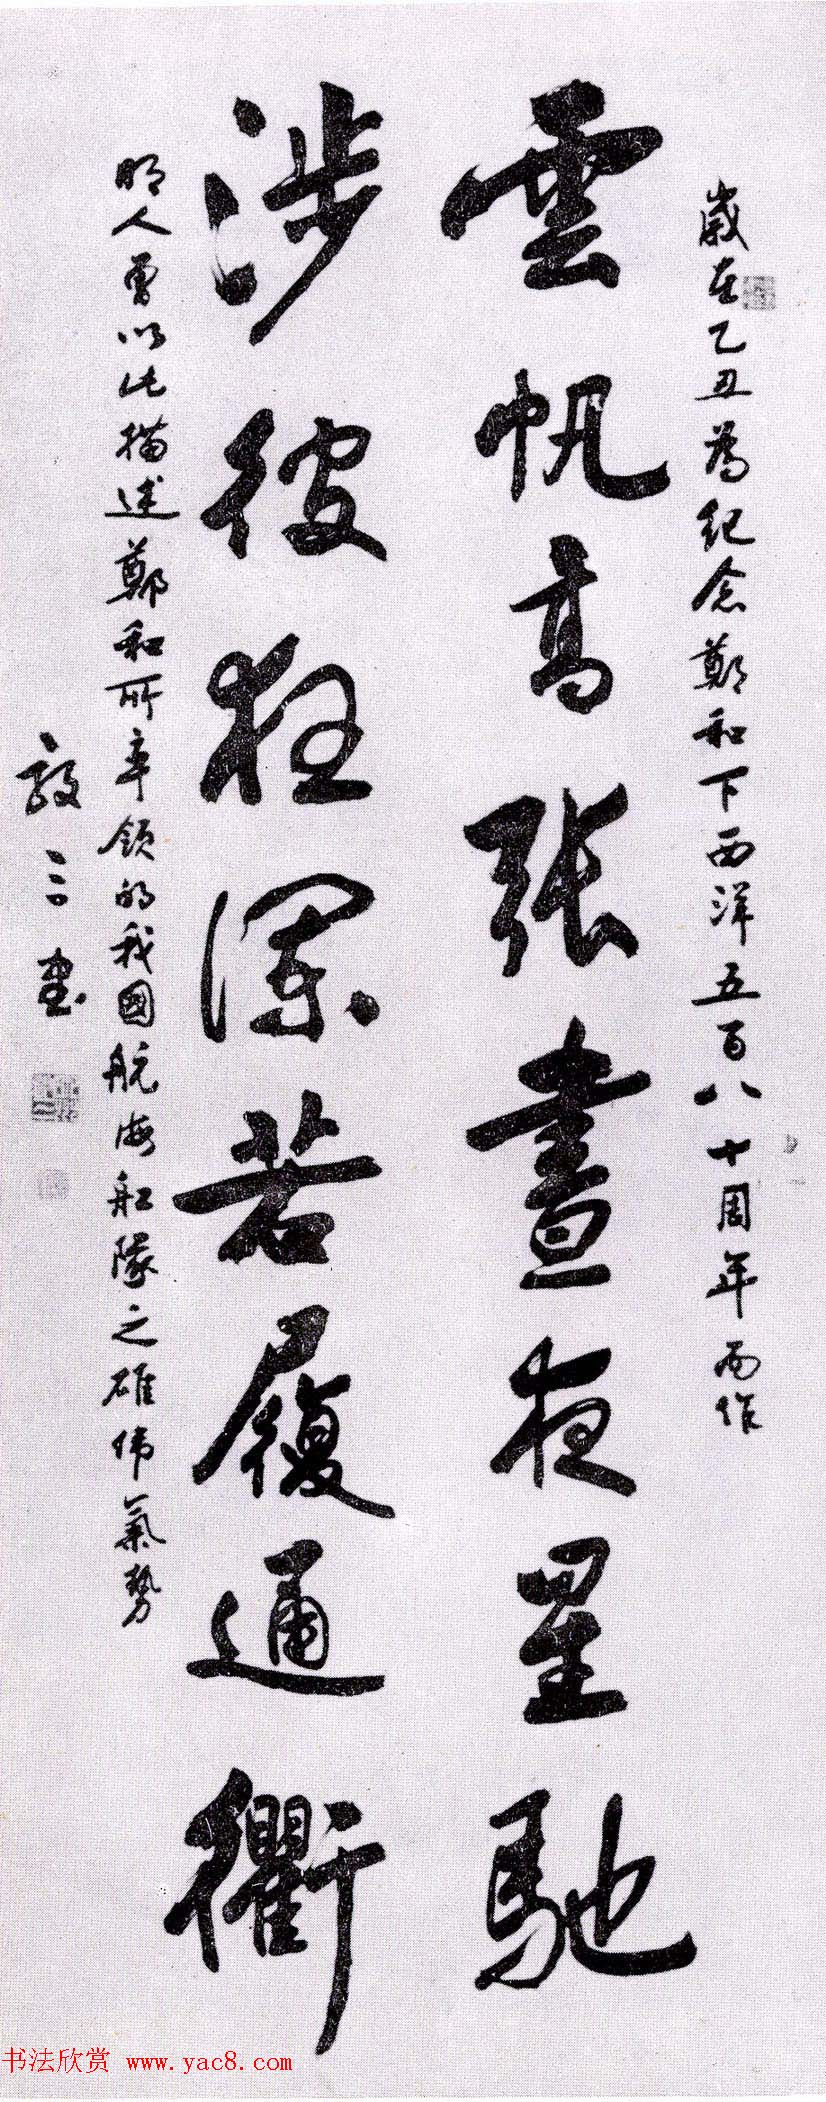 歲在乙丑為紀念鄭和下西洋五百八十周年而作
雲帆高張晝夜星馳
涉彼狂瀾若履通衢
明人曾以此描述鄭和所率領的我國航海船隊之雄偉氣勢
敬三書
书法欣赏 www.yac8.com